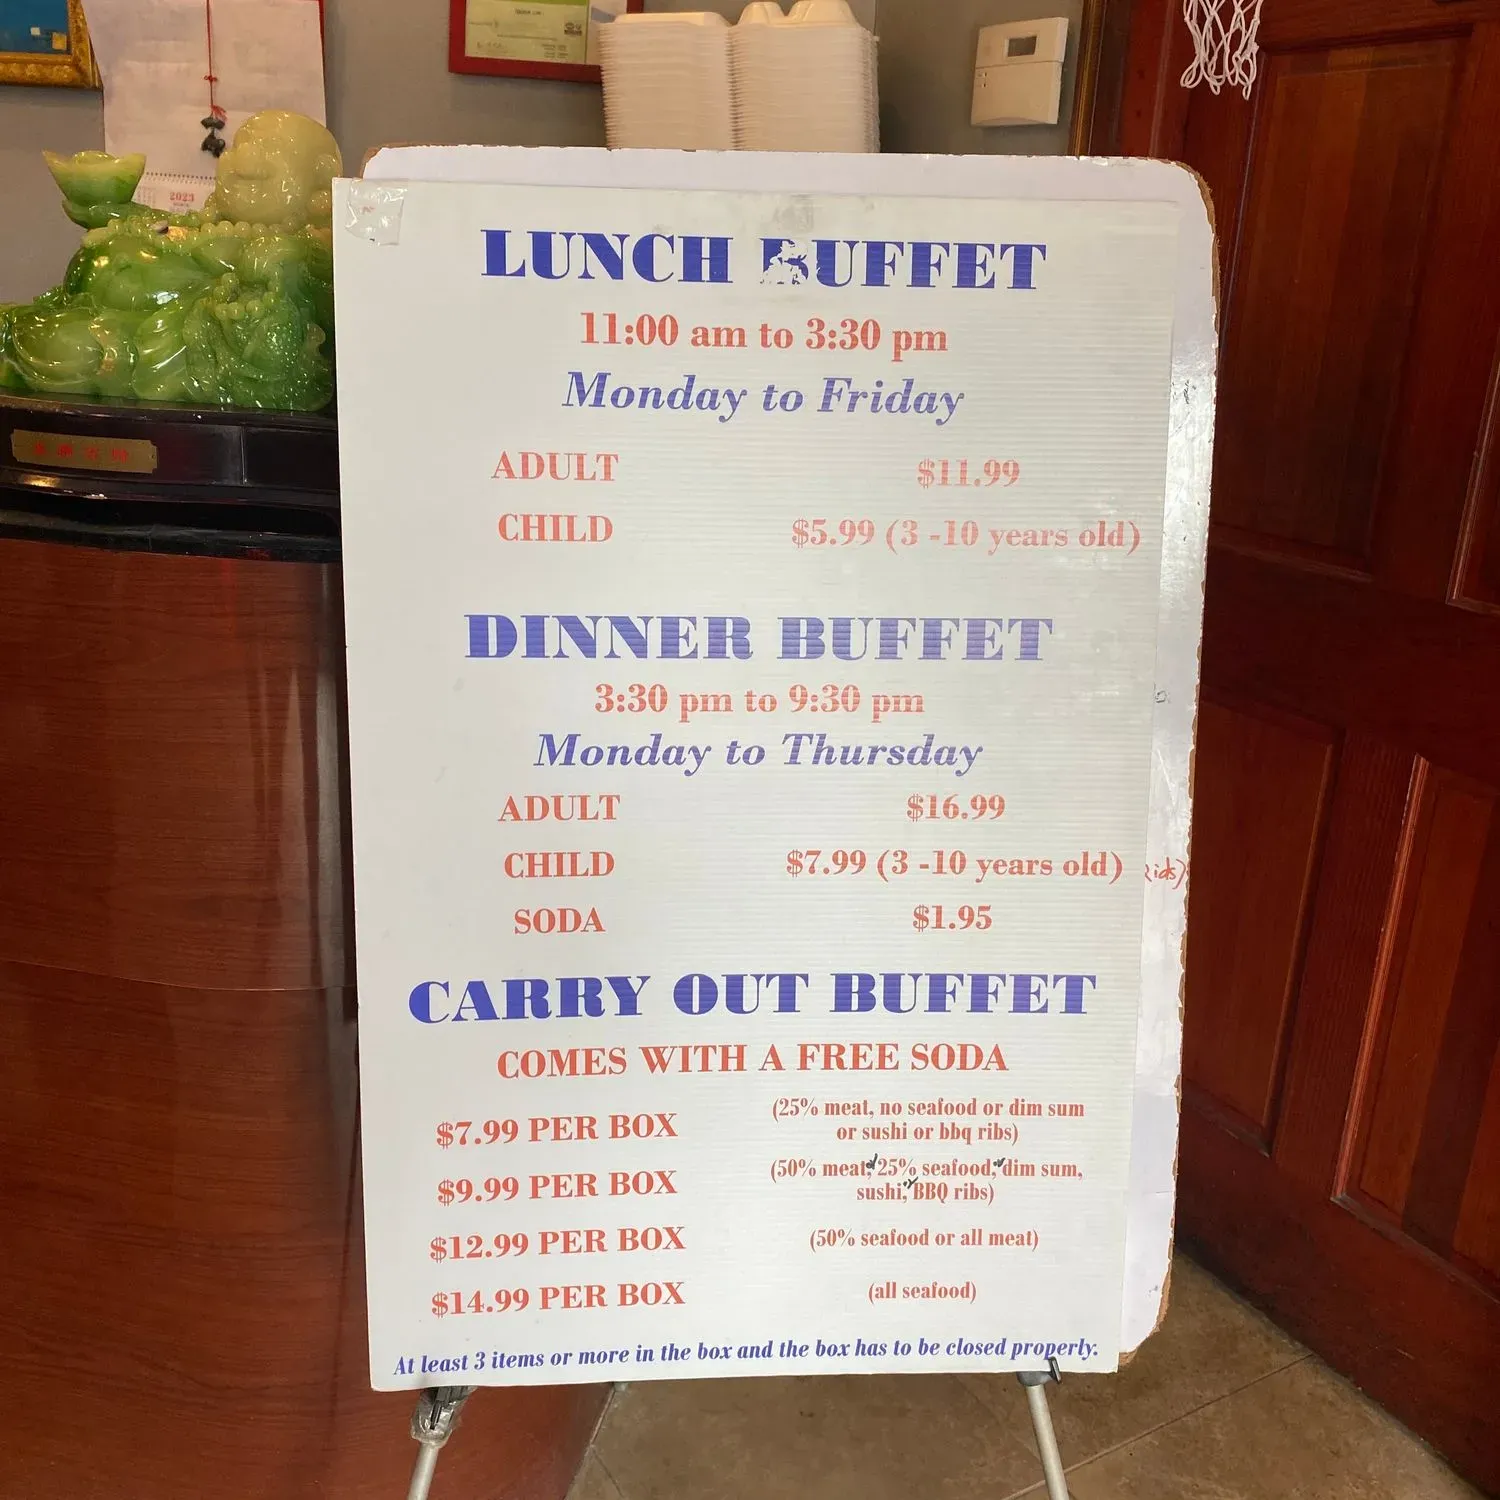 2023
LUNCH BUFFET
11:00 am to 3:30 pm
Monday to Friday
ADULT $11.99
CHILD $5.99 (3 -10 years old)
DINNER BUFFET
3:30 pm to 9:30 pm
Monday to Thursday
ADULT $16.99
CHILD $7.99 (3 -10 years old)
SODA $1.95
CARRY OUT BUFFET
COMES WITH A FREE SODA
$7.99 PER BOX (25% meat, no seafood or dim sum
or sushi or bbq ribs)
$9.99 PER BOX (50% meat, or 25% seafood, or dim sum,
sushi, or BBQ ribs)
$12.99 PER BOX (50% seafood or all meat)
$14.99 PER BOX (all seafood)
At least 3 items or more in the box and the box has to be closed properly.